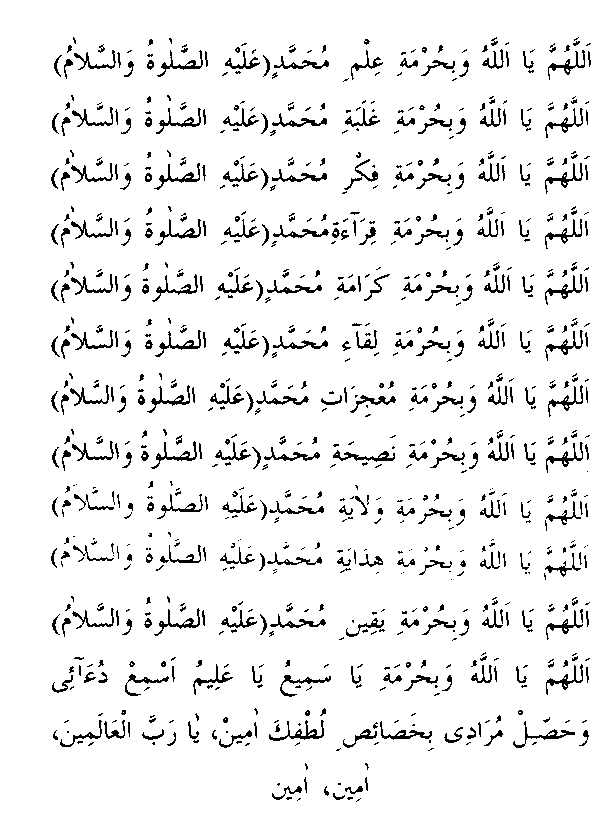 اَللَّهُمَّ يَا اَللَّهُ وَبِحُرْمَةِ عِلْمِ مُحَمَّدٍ(عَلَيْهِ الصَّلٰوةُ وَالسَّلاٰمُ)
اَللَّهُمَّ يَا اَللَّهُ وَبِحُرْمَةِ غَلَبَةِ مُحَمَّدٍ(عَلَيْهِ الصَّلٰوةُ وَالسَّلاٰمُ)
اَللَّهُمَّ يَا اَللَّهُ وَبِحُرْمَةِ فِكْرِ مُحَمَّدٍ(عَلَيْهِ الصَّلٰوةُ وَالسَّلاٰمُ)
اَللَّهُمَّ يَا اَللَّهُ وَبِحُرْمَةِ قِرَآءَةِ مُحَمَّدٍ(عَلَيْهِ الصَّلٰوةُ وَالسَّلاٰمُ)
اَللَّهُمَّ يَا اَللَّهُ وَبِحُرْمَةِ كَرَامَةِ مُحَمَّدٍ(عَلَيْهِ الصَّلٰوةُ وَالسَّلاٰمُ)
اَللَّهُمَّ يَا اَللَّهُ وَبِحُرْمَةِ لِقَآءِ مُحَمَّدٍ(عَلَيْهِ الصَّلٰوةُ وَالسَّلاٰمُ)
اَللَّهُمَّ يَا اَللَّهُ وَبِحُرْمَةِ مُعْجِزَاتِ مُحَمَّدٍ(عَلَيْهِ الصَّلٰوةُ وَالسَّلاٰمُ)
اَللَّهُمَّ يَا اَللَّهُ وَبِحُرْمَةِ نَصِيحَةِ مُحَمَّدٍ(عَلَيْهِ الصَّلٰوةُ وَالسَّلاٰمُ)
اَللَّهُمَّ يَا اَللَّهُ وَبِحُرْمَةِ وَلاٰيَةِ مُحَمَّدٍ(عَلَيْهِ الصَّلٰوةُ والسَّلاٰمُ)
اَللَّهُمَّ يَا اللَّهُ وَبِحُرْمَةِ هِدَايَةِ مُحَمَّدٍ(عَلَيْهِ الصَّلٰوةُ وَالسَّلاٰمُ)
اَللَّهُمَّ يَا اَللَّهُ وَبِحُرْمَةِ يَقِينِ مُحَمَّدٍ(عَلَيْهِ الصَّلٰوةُ وَالسَّلاٰمُ)
اَللَّهُمَّ يَا اَللَّهُ وَبِحُرْمَةِ يَا سَمِيعُ يَا عَلِيمُ اَسْمِعْ دُعَآئِى
وَحَصِّلْ مُرَادِى بِخَصَائِصِ لُطْفِكَ اٰمِينْ، يٰا رَبَّ الْعَالَمِينَ،
اٰمِين، اٰمِين